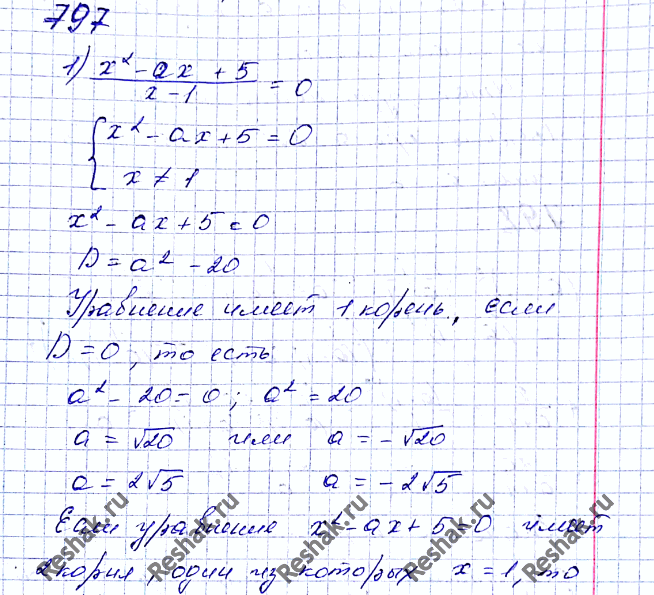 797
1) x² - ax + 5 / x - 1 = 0
{ x² - ax + 5 = 0
x ≠ 1
x² - ax + 5 = 0
D = a² - 20
Уравнение имеет 1 корень, если
D = 0, то есть
a² - 20 = 0; a² = 20
a = √20 или a = -√20
a = 2√5 a = -2√5
Если уравнение x² - ax + 5 = 0 имеет
2 корня, один из которых x = 1, то
Reshak.ru Reshak.ru Reshak.ru Reshak.ru Reshak.ru